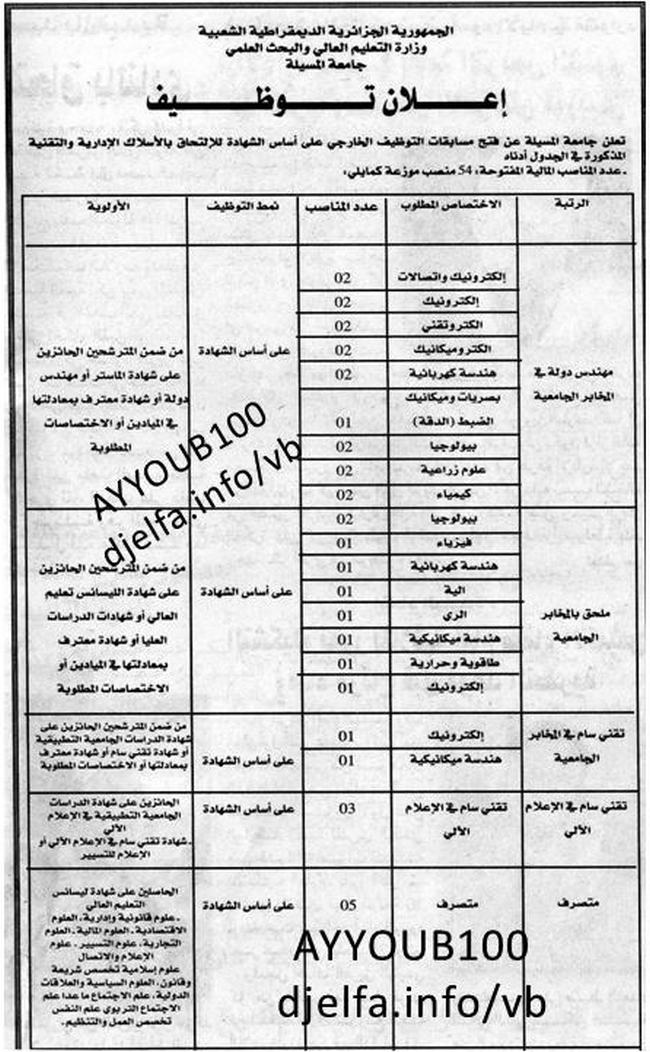 الجمهورية الجزائرية الديمقراطية الشعبية
وزارة التعليم العالي والبحث العلمي
جامعة المسيلة
إعـــلان تـــوظـــيـــف
تعلن جامعة المسيلة عن فتح مسابقات التوظيف الخارجي على أساس الشهادة للإلتحاق بالأسلاك الإدارية والتقنية
المذكورة في الجدول أدناه
ـ عدد المناصب المالية المفتوحة، 54 منصب موزعة كمايلي،
الرتبة الاختصاص المطلوب عدد المناصب نمط التوظيف الأولوية
مهندس دولة في
المخابر الجامعية
إلكترونيك واتصالات 02
إلكترونيك 02
الكتروتقني 02
الكتروميكانيك 02
هندسة كهربائية 02
بصريات وميكانيك
الضبط (الدقة) 01
بيولوجيا 02
علوم زراعية 02
كيمياء 02
على أساس الشهادة
من ضمن المترشحين الحائزين
على شهادة الماستر أو مهندس
دولة أو شهادة معترف بمعادلتها
في الميادين أو الاختصاصات
المطلوبة
ملحق بالمخابر
الجامعية
بيولوجيا 02
فيزياء 01
هندسة كهربائية 01
الية 01
الري 01
هندسة ميكانيكية 01
طاقوية وحرارية 01
إلكترونيك 01
على أساس الشهادة
من ضمن المترشحين الحائزين
على شهادة الليسانس تعليم
العالي أو شهادات الدراسات
العليا أو شهادة معترف
بمعادلتها في الميادين أو
الاختصاصات المطلوبة
تقني سام في المخابر
الجامعية
إلكترونيك 01
هندسة ميكانيكية 01
على أساس الشهادة
من ضمن المترشحين الحائزين على
شهادة الدراسات الجامعية التطبيقية
أو شهادة تقني سام أو شهادة معترف
بمعادلتها أو الاختصاصات المطلوبة
تقني سام في الإعلام
الألي
تقني سام في الإعلام
الألي
03
على أساس الشهادة
الحائزين على شهادة الدراسات
الجامعية التطبيقية في الإعلام
الألي
ـ شهادة تقني سام في الإعلام الألي أو
الإعلام للتسيير
متصرف متصرف 05 على أساس الشهادة
الحاصلين على شهادة ليسانس
التعليم العالي
ـ علوم قانونية وإدارية، العلوم
الاقتصادية، العلوم المالية، العلوم
التجارية، علوم التسيير، علوم
الإعلام والاتصال
علوم إسلامية تخصص شريعة
وقانون، العلوم السياسية والعلاقات
الدولية، علم الاجتماع ما عدا علم
الاجتماع التربوي علم النفس
تخصص العمل والتنظيم.
AYYOUB100
djelfa.info/vb
AYYOUB100
djelfa.info/vb